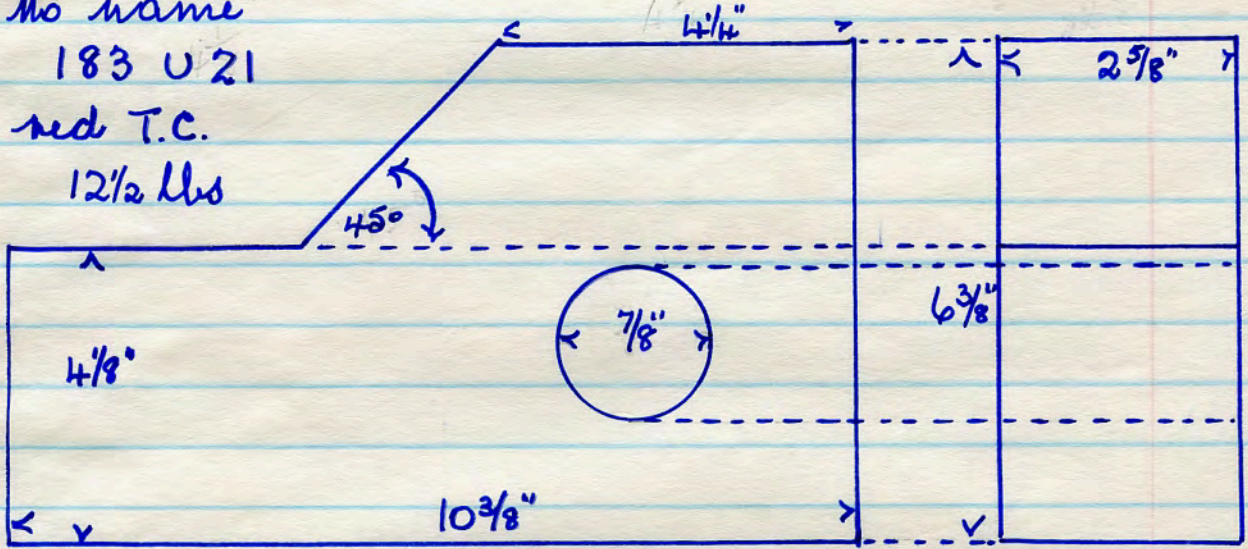 no name
183 U 21
red T.C.
12 1/2 lbs
4 1/4"
2 5/8"
45°
4 1/8"
7/8"
6 3/8"
10 3/8"